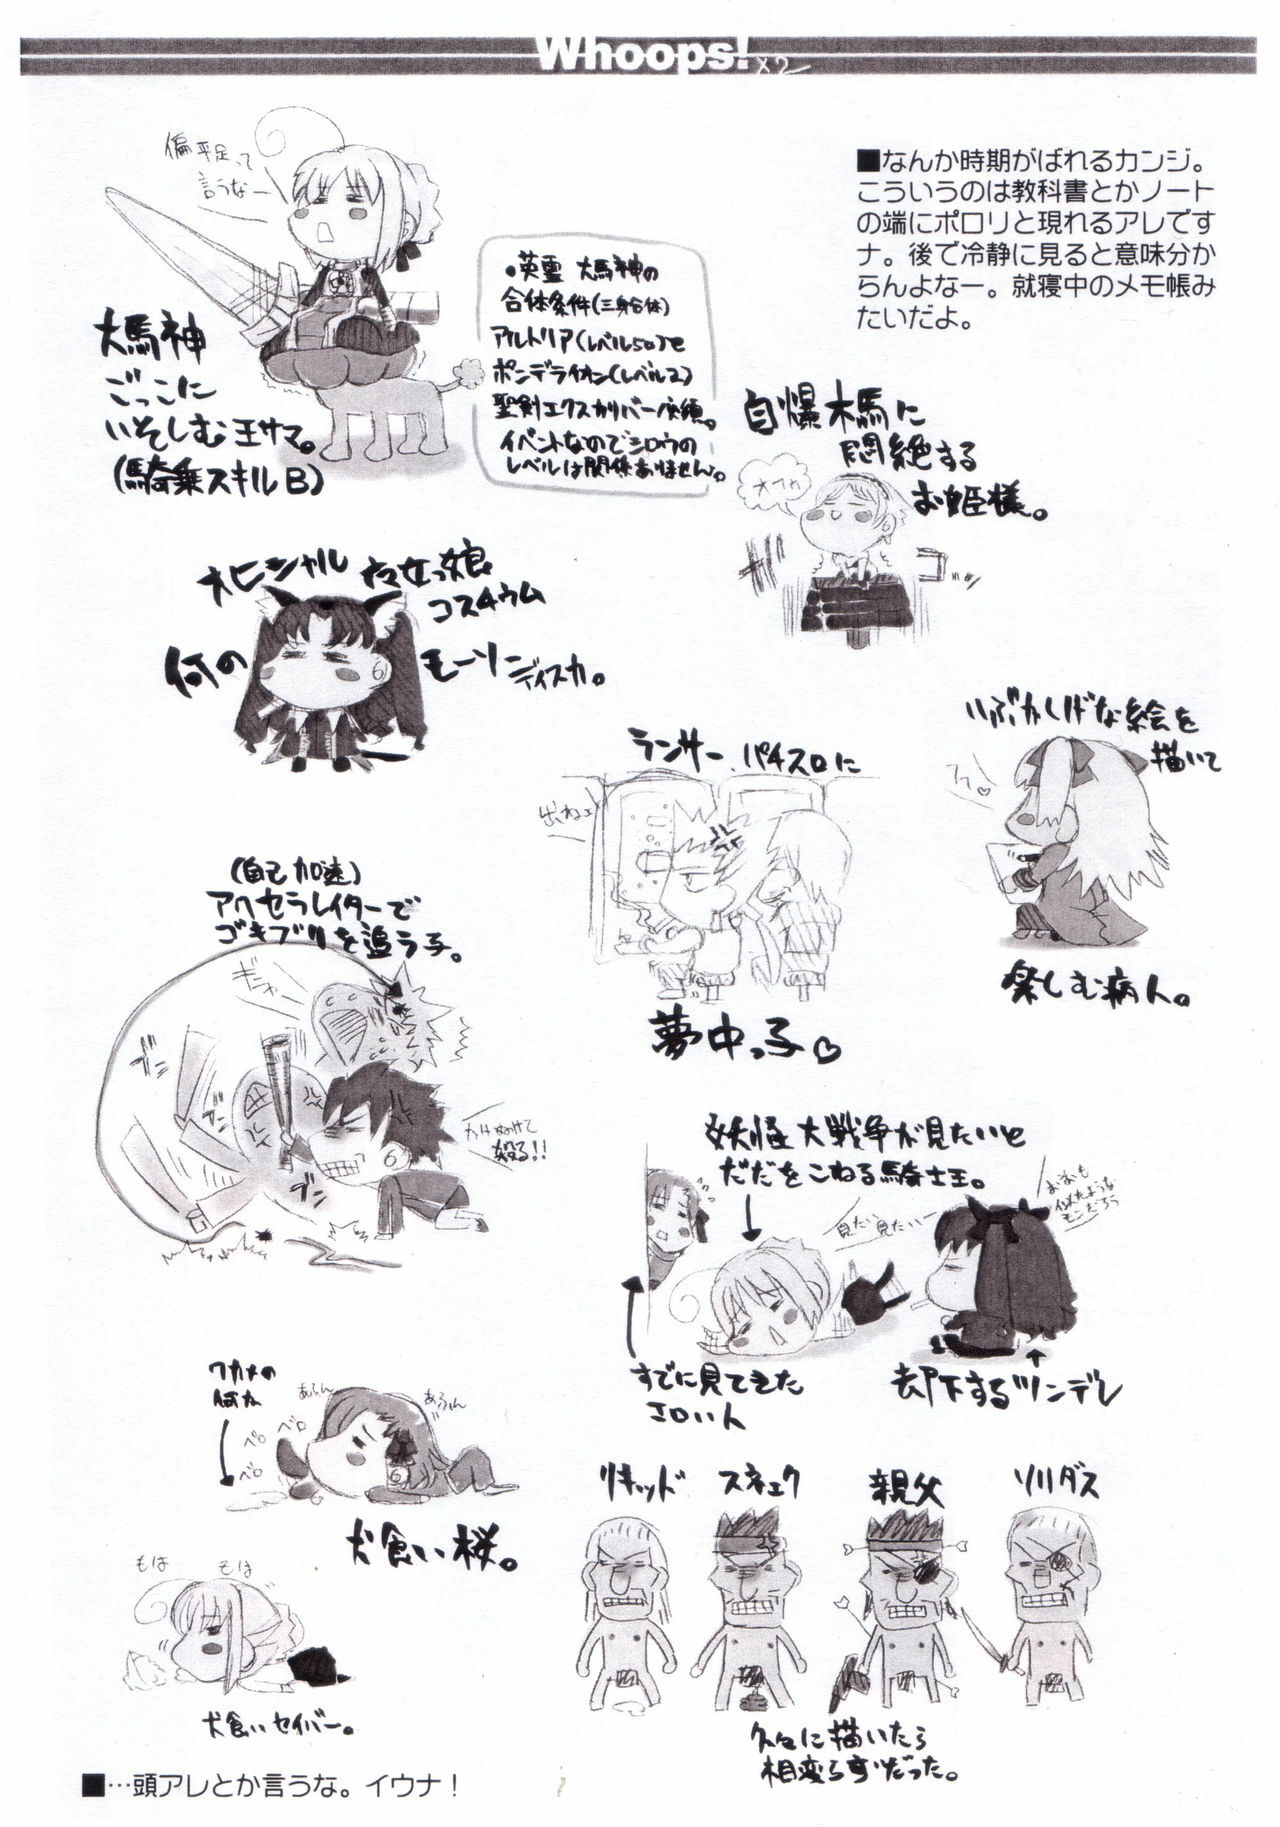 Whoops! ×2
■なんか時期がばれるカンジ。
こういうのは教科書とかノート
の端にポロリと現れるアレです
ナ。後で冷静に見ると意味分か
らんよなー。就寝中のメモ帳み
たいだよ。
偏平足って
言うなー
大馬神
ごっこに
いそしむ王サマ。
(騎乗スキルB)
・英霊 大馬神の
合体条件(三身合体)
アルトリア(レベル50)と
ポンデライオン(レベル2)
聖剣エクスカリバー必須。
イベントなのでシロウの
レベルは関係ありません。
自爆木馬に
悶絶する
お姫様。
オヒシャル
コスチウム
何の
モーソー
ディスカ。
いぶかしげな絵を
描いて
フフ♡
楽しむ病人。
ランサー パチスロに
出ねェ
夢中っ子♡
(自己加速)
アクセラレイターで
ゴキブリを追う子。
ギャー
殴る!!
妖怪大戦争が見たいと
だだをこねる騎士王。
見たい見たいー
おまえも
似たような
モンだろう
すでに見てきた
エロい人
却下するツンデレ
ワカメの
何か
あふん
あふん
ベロ
ベロ
ベロ
犬食い桜。
もは もは
犬食いセイバー。
リキッド スネェク 親父 ソリダス
久々に描いたら
相変らずだった。
■…頭アレとか言うな。イウナ！